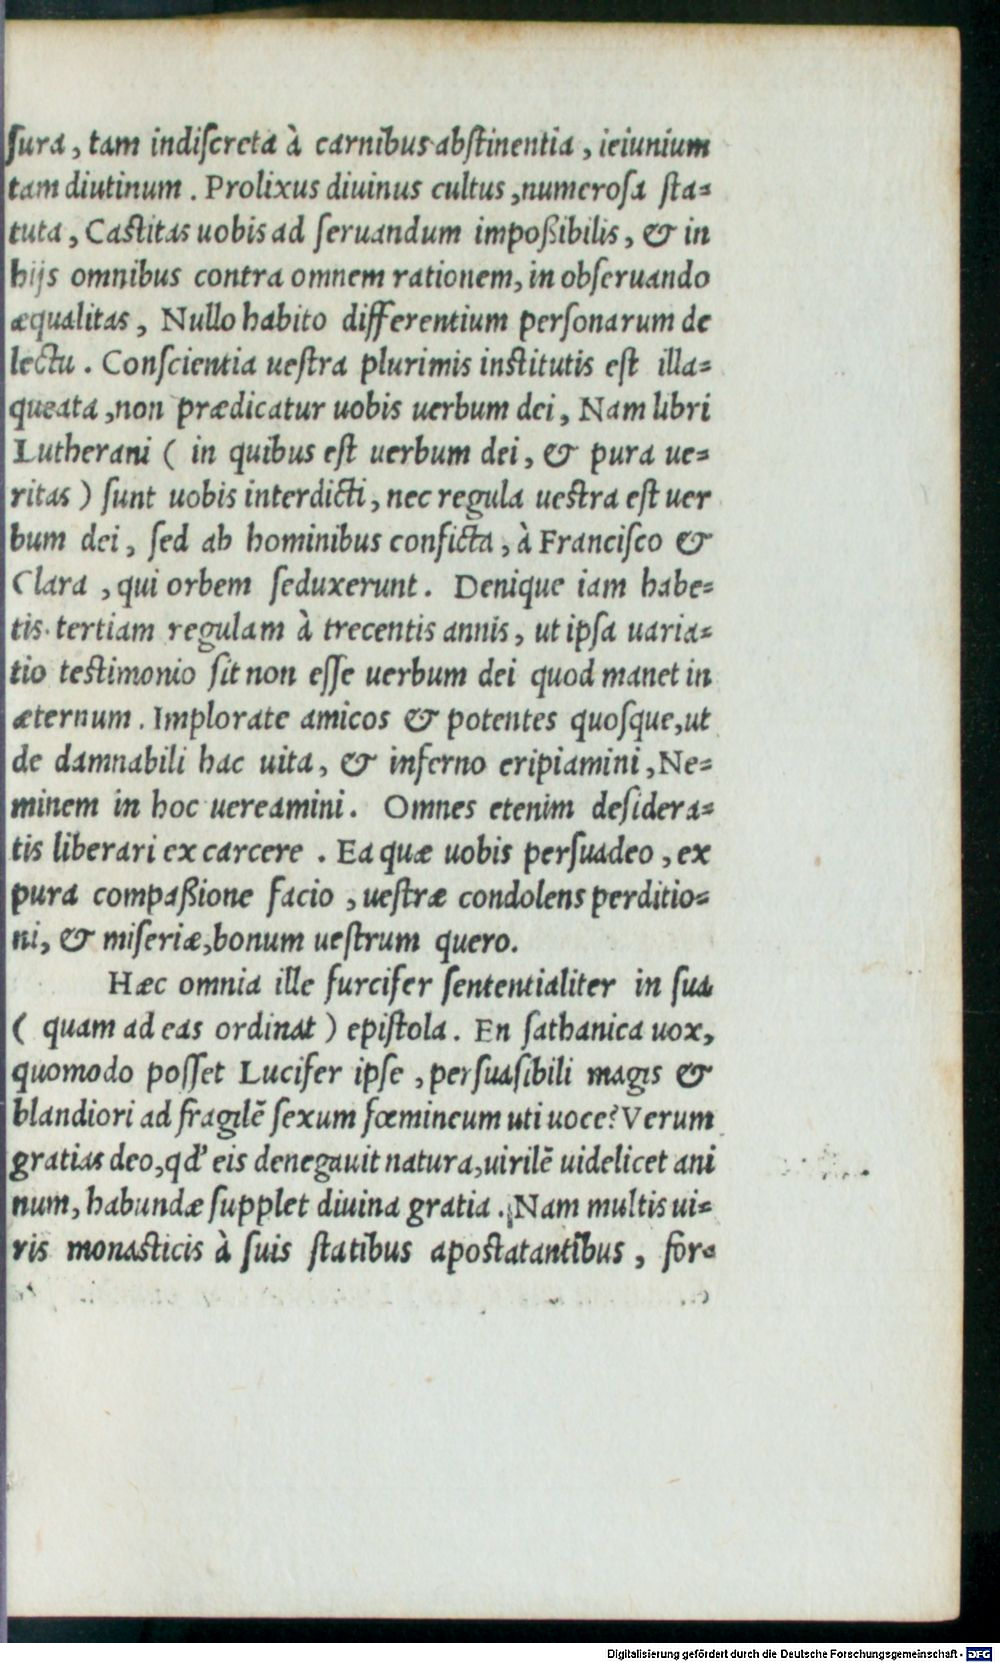 ſura, tam indiſcreta à carnibus abſtinentia, ieiunium
tam diutinum. Prolixus diuinus cultus, numeroſa ſta=
tuta, Caſtitas uobis ad ſeruandum impoßibilis, & in
hijs omnibus contra omnem rationem, in obſeruando
æqualitas, Nullo habito differentium perſonarum de
lectu. Conſcientia ueſtra plurimis inſtitutis eſt illa=
queata, non prædicatur uobis uerbum dei, Nam libri
Lutherani ( in quibus eſt uerbum dei, & pura ue=
ritas ) ſunt uobis interdicti, nec regula ueſtra eſt uer
bum dei, ſed ab hominibus conficta, à Franciſco &
Clara, qui orbem ſeduxerunt. Denique iam habe=
tis tertiam regulam à trecentis annis, ut ipſa uaria=
tio teſtimonio ſit non eſſe uerbum dei quod manet in
æternum. Implorate amicos & potentes quoſque, ut
de damnabili hac uita, & inferno eripiamini, Ne=
minem in hoc uereamini. Omnes etenim deſidera=
tis liberari ex carcere. Ea quæ uobis perſuadeo, ex
pura compaßione facio, ueſtræ condolens perditio=
ni, & miſeriæ, bonum ueſtrum quero.
Hæc omnia ille furcifer ſententialiter in ſua
( quam ad eas ordinat ) epiſtola. En ſathanica uox,
quomodo poſſet Lucifer ipſe, perſuaſibili magis &
blandiori ad fragilē ſexum fœmineum uti uoce? Verum
gratias deo, qd' eis denegauit natura, uirilē uidelicet ani
num, habundæ supplet diuina gratia. Nam multis ui=
ris monaſticis à ſuis ſtatibus apoſtatantibus, for=
Digitalisierung gefördert durch die Deutsche Forschungsgemeinschaft - DFG